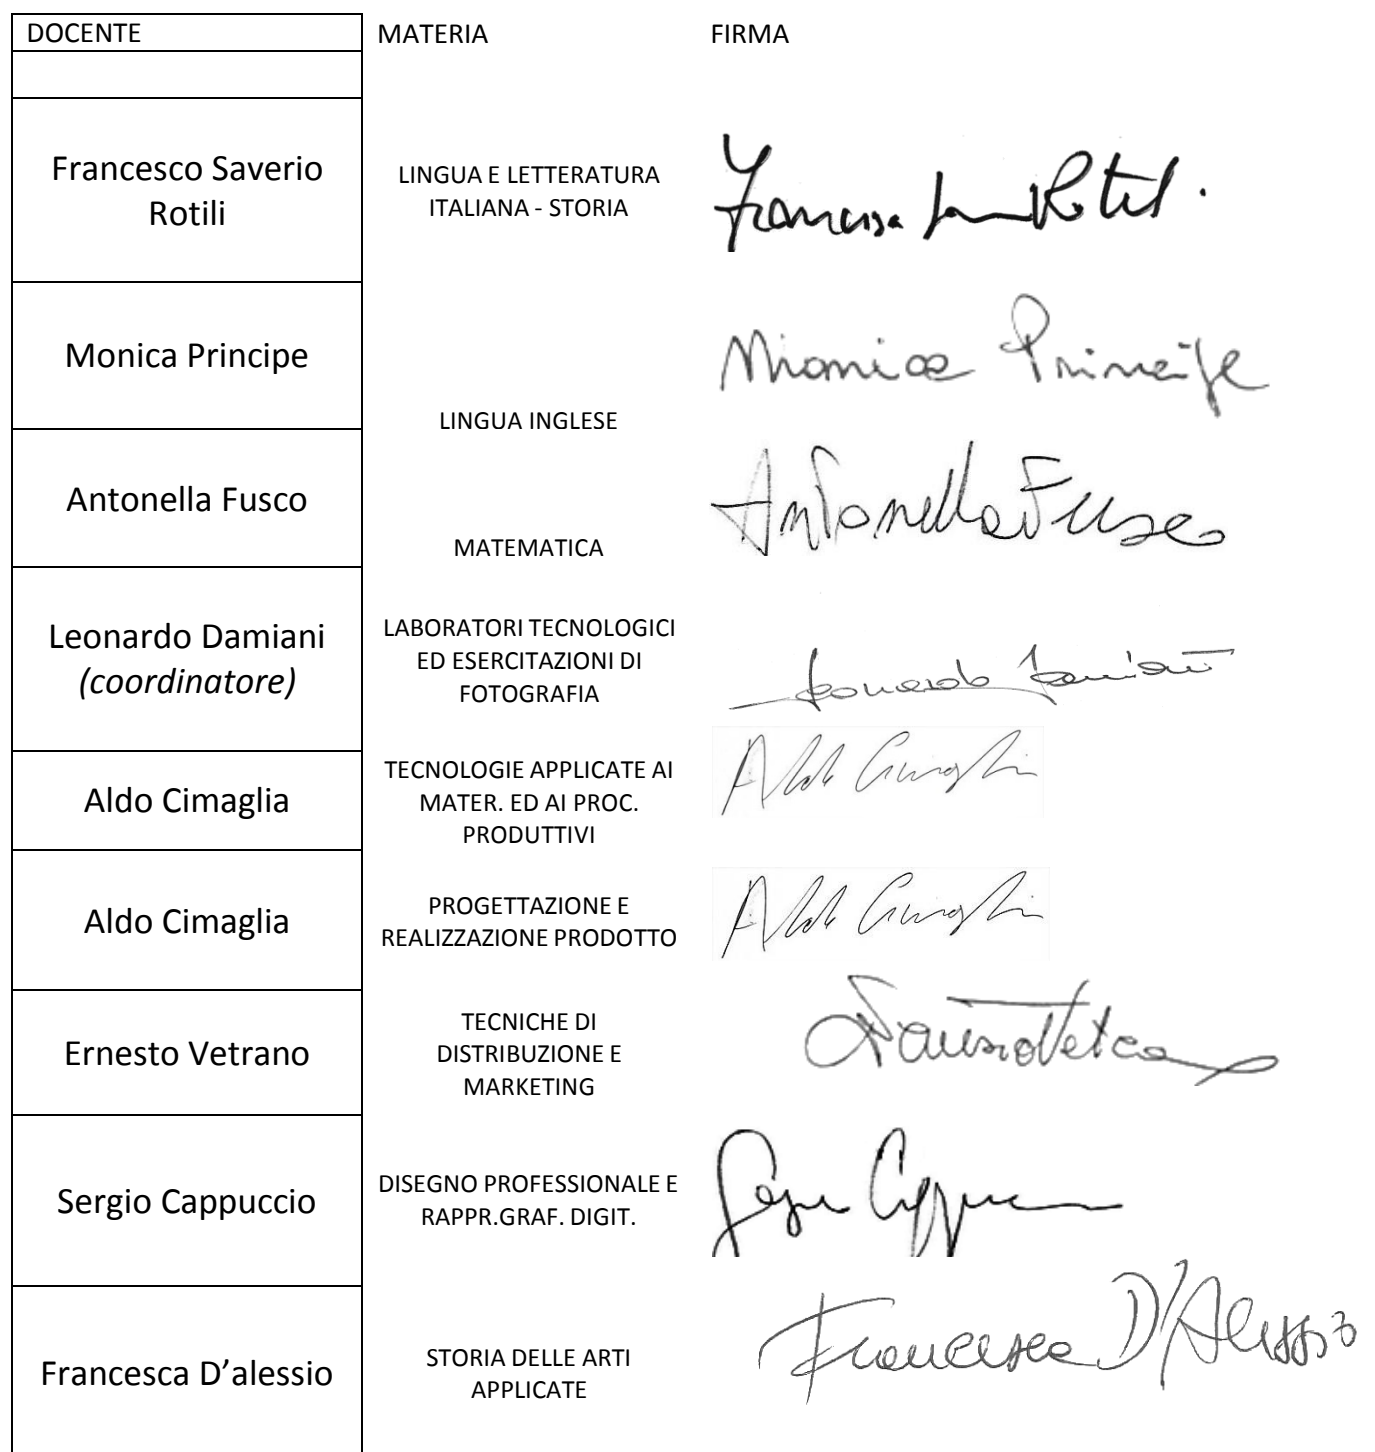 DOCENTE MATERIA FIRMA
Francesco Saverio
Rotili
LINGUA E LETTERATURA
ITALIANA - STORIA
Monica Principe
LINGUA INGLESE
Monica Principe
Antonella Fusco
MATEMATICA
Antonella Fusco
Leonardo Damiani
(coordinatore)
LABORATORI TECNOLOGICI
ED ESERCITAZIONI DI
FOTOGRAFIA
Leonardo Damiani
Aldo Cimaglia
TECNOLOGIE APPLICATE AI
MATER. ED AI PROC.
PRODUTTIVI
Aldo Cimaglia
Aldo Cimaglia
PROGETTAZIONE E
REALIZZAZIONE PRODOTTO
Aldo Cimaglia
Ernesto Vetrano
TECNICHE DI
DISTRIBUZIONE E
MARKETING
Sergio Cappuccio
DISEGNO PROFESSIONALE E
RAPPR.GRAF. DIGIT.
Francesca D’alessio
STORIA DELLE ARTI
APPLICATE
Francesca D'Alessio